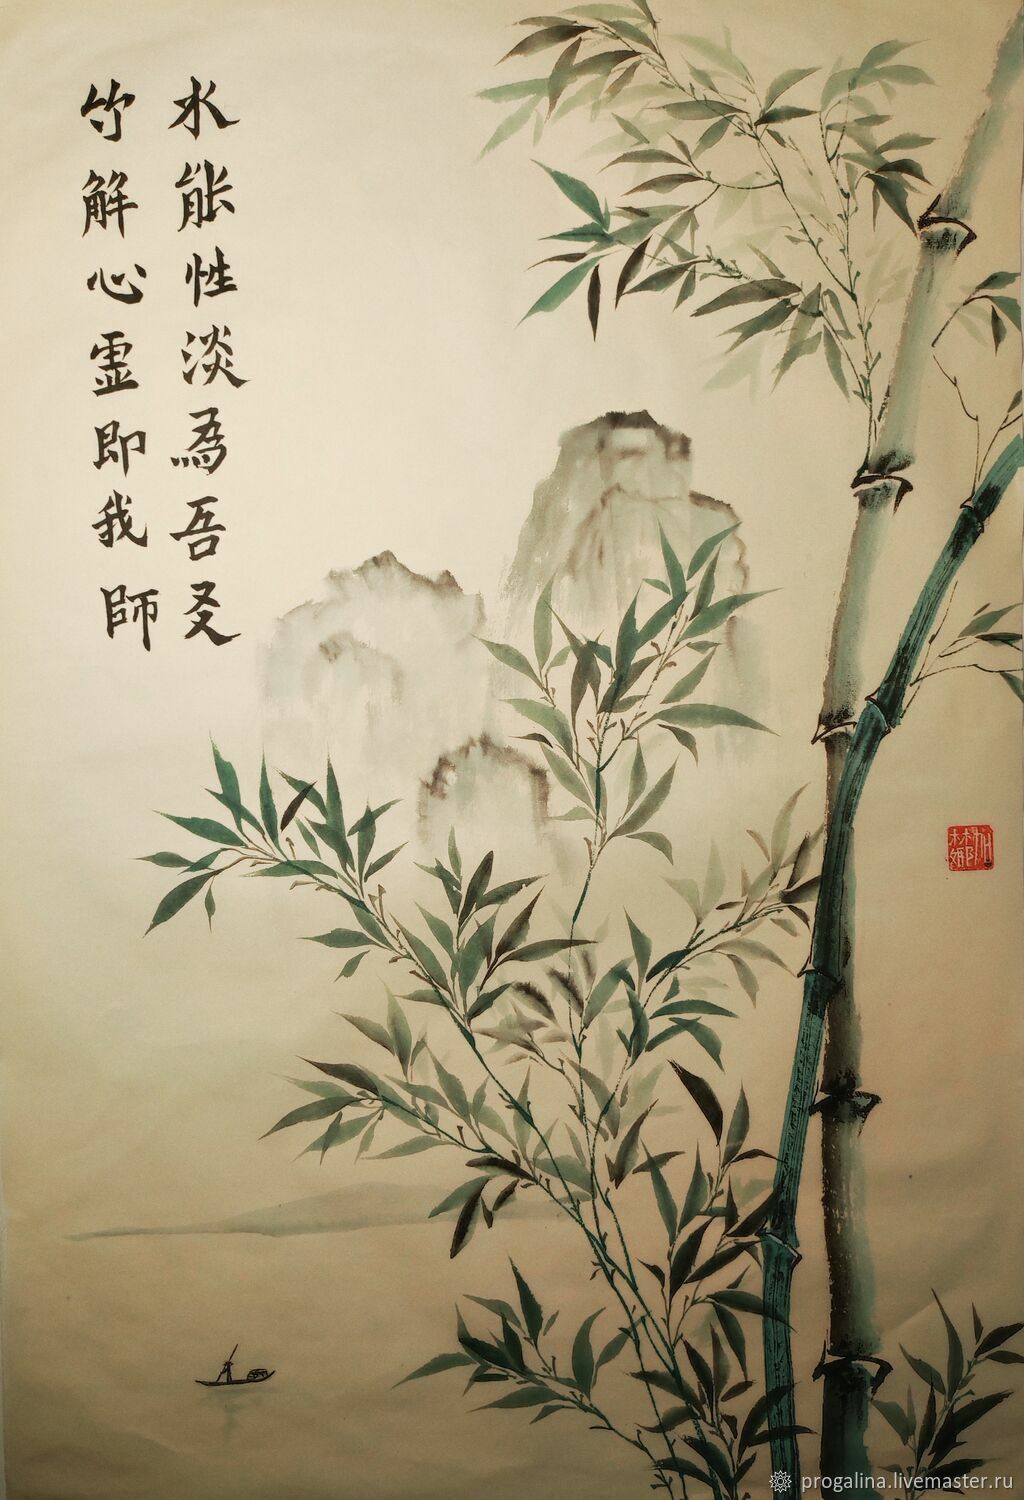 水能性淡為吾友
竹解心霊即我師
progalina.livemaster.ru